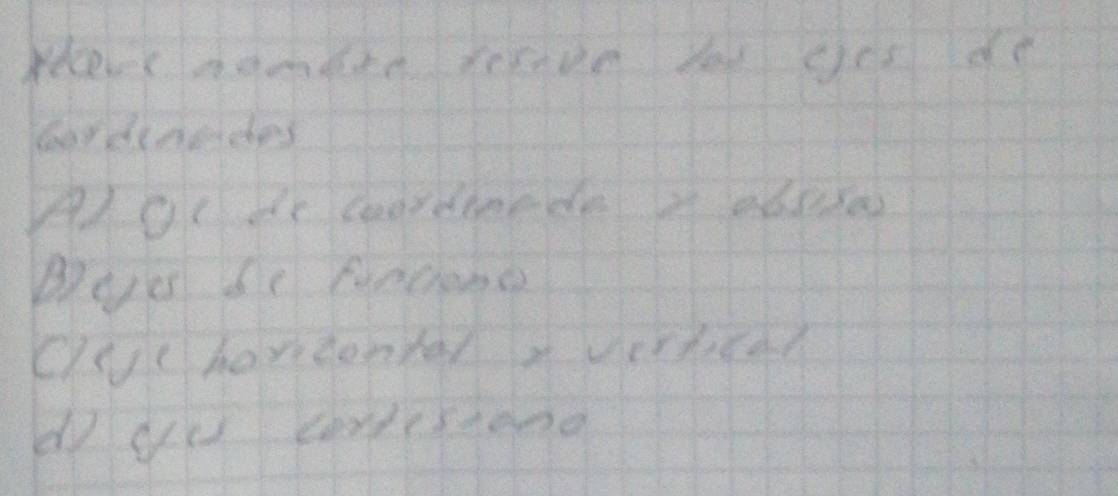 nombre resive los ejes de
cordenadas
A) eje de coordenada y absisas
B) ejes de funcione
C) eje horicontal y vertical
d) ejes cartesiano